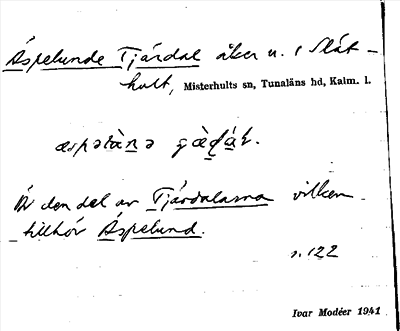 Äspelunde Tjärdal åker n. i Slät-
hult, Misterhults sn, Tunaläns hd, Kalm. l.
Är den del av Tjärdalarna vilken
tillhör Äspelund.
s. 122
Ivar Modéer 1941